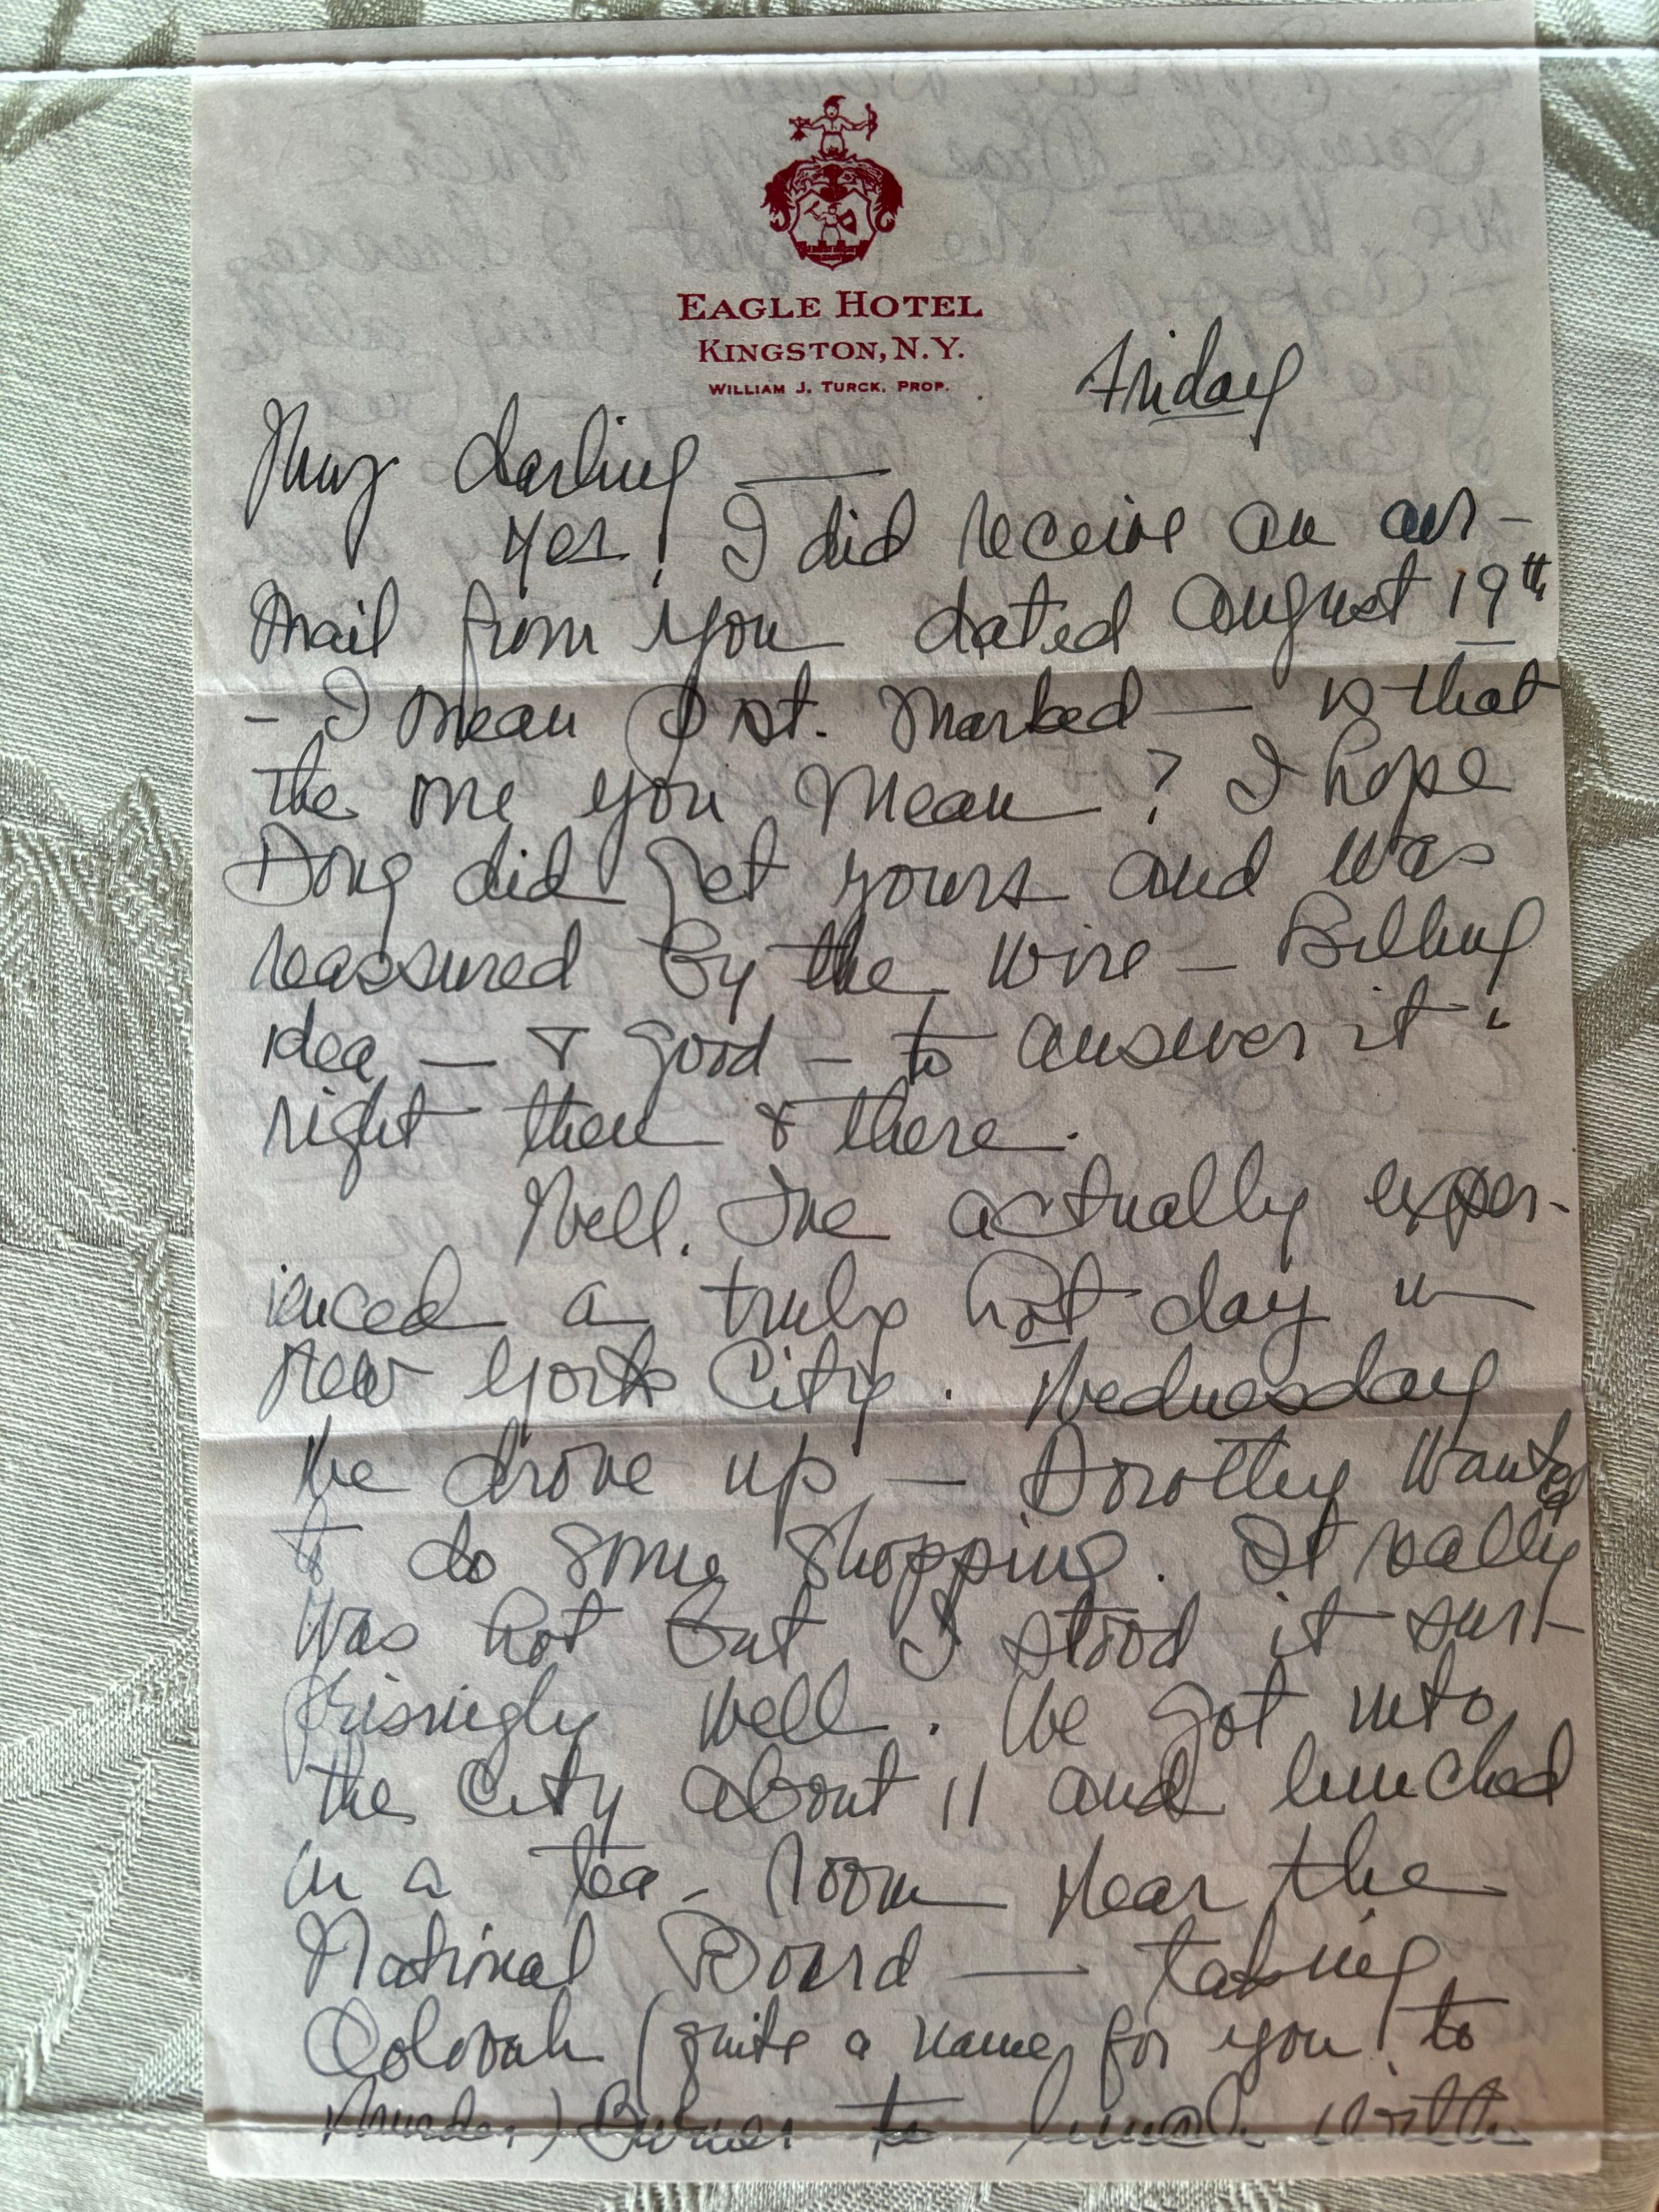 EAGLE HOTEL
KINGSTON, N.Y.
WILLIAM J. TURCK, PROP.
Friday
My darling —
Yes! I did receive an air-
mail from you dated August 19th
- I mean post. marked — is that
the one you mean? I hope
Doug did get yours and was
reassured by the wire —
idea — & good — to answer it
right then & there.
Well. I've actually exper-
ienced a truly hot day in
New York City. Wednesday
we drove up — Dorothy wanted
to do some shopping. It really
was hot but I stood it sur-
prisingly well. We got into
the City about 11 and lunched
in a tea-room near the
National Board — taking
(quite a name for you to
) to lunch with